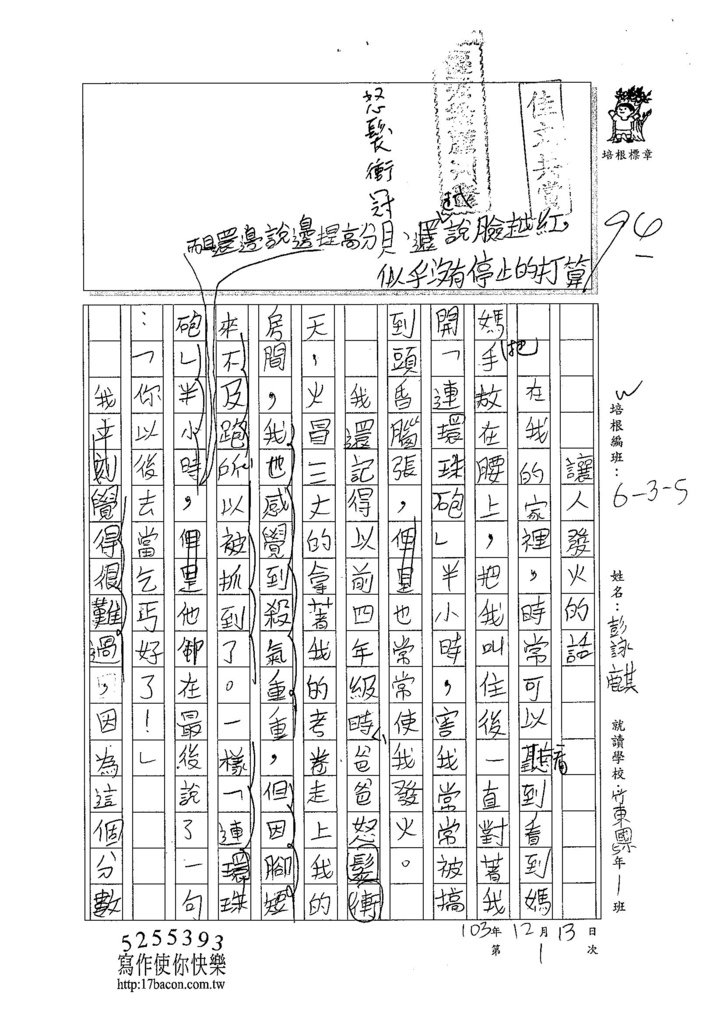 佳文共賞
培根標章
怒髮衝冠
而且還邊說邊提高分貝、還越說臉越紅，
似乎沒有停止的打算
94
培根編班：W 6-3-5
姓名：彭詠麒
就讀學校：竹東國5年1班
103年12月13日
第1次
讓人發火的話
在我的家裡，時常可以聽看到看到媽
媽手把放在腰上，把我叫住後一直對著我
開「連環珠砲」半小時，害我常常被搞
到頭昏腦張，但是也常常使我發火。
我還記得以前四年級時，爸爸怒髮衝
天，火冒三丈的拿著我的考卷走上我的
房間，我也感覺到殺氣重重，但因腳矮
來不及跑所以被抓到了。一樣「連環珠
砲」半小時，但是他卻在最後說了一句
：「你以後去當乞丐好了！」
我立刻覺得很難過，因為這個分數
5255393
寫作使你快樂
http:17bacon.com.tw